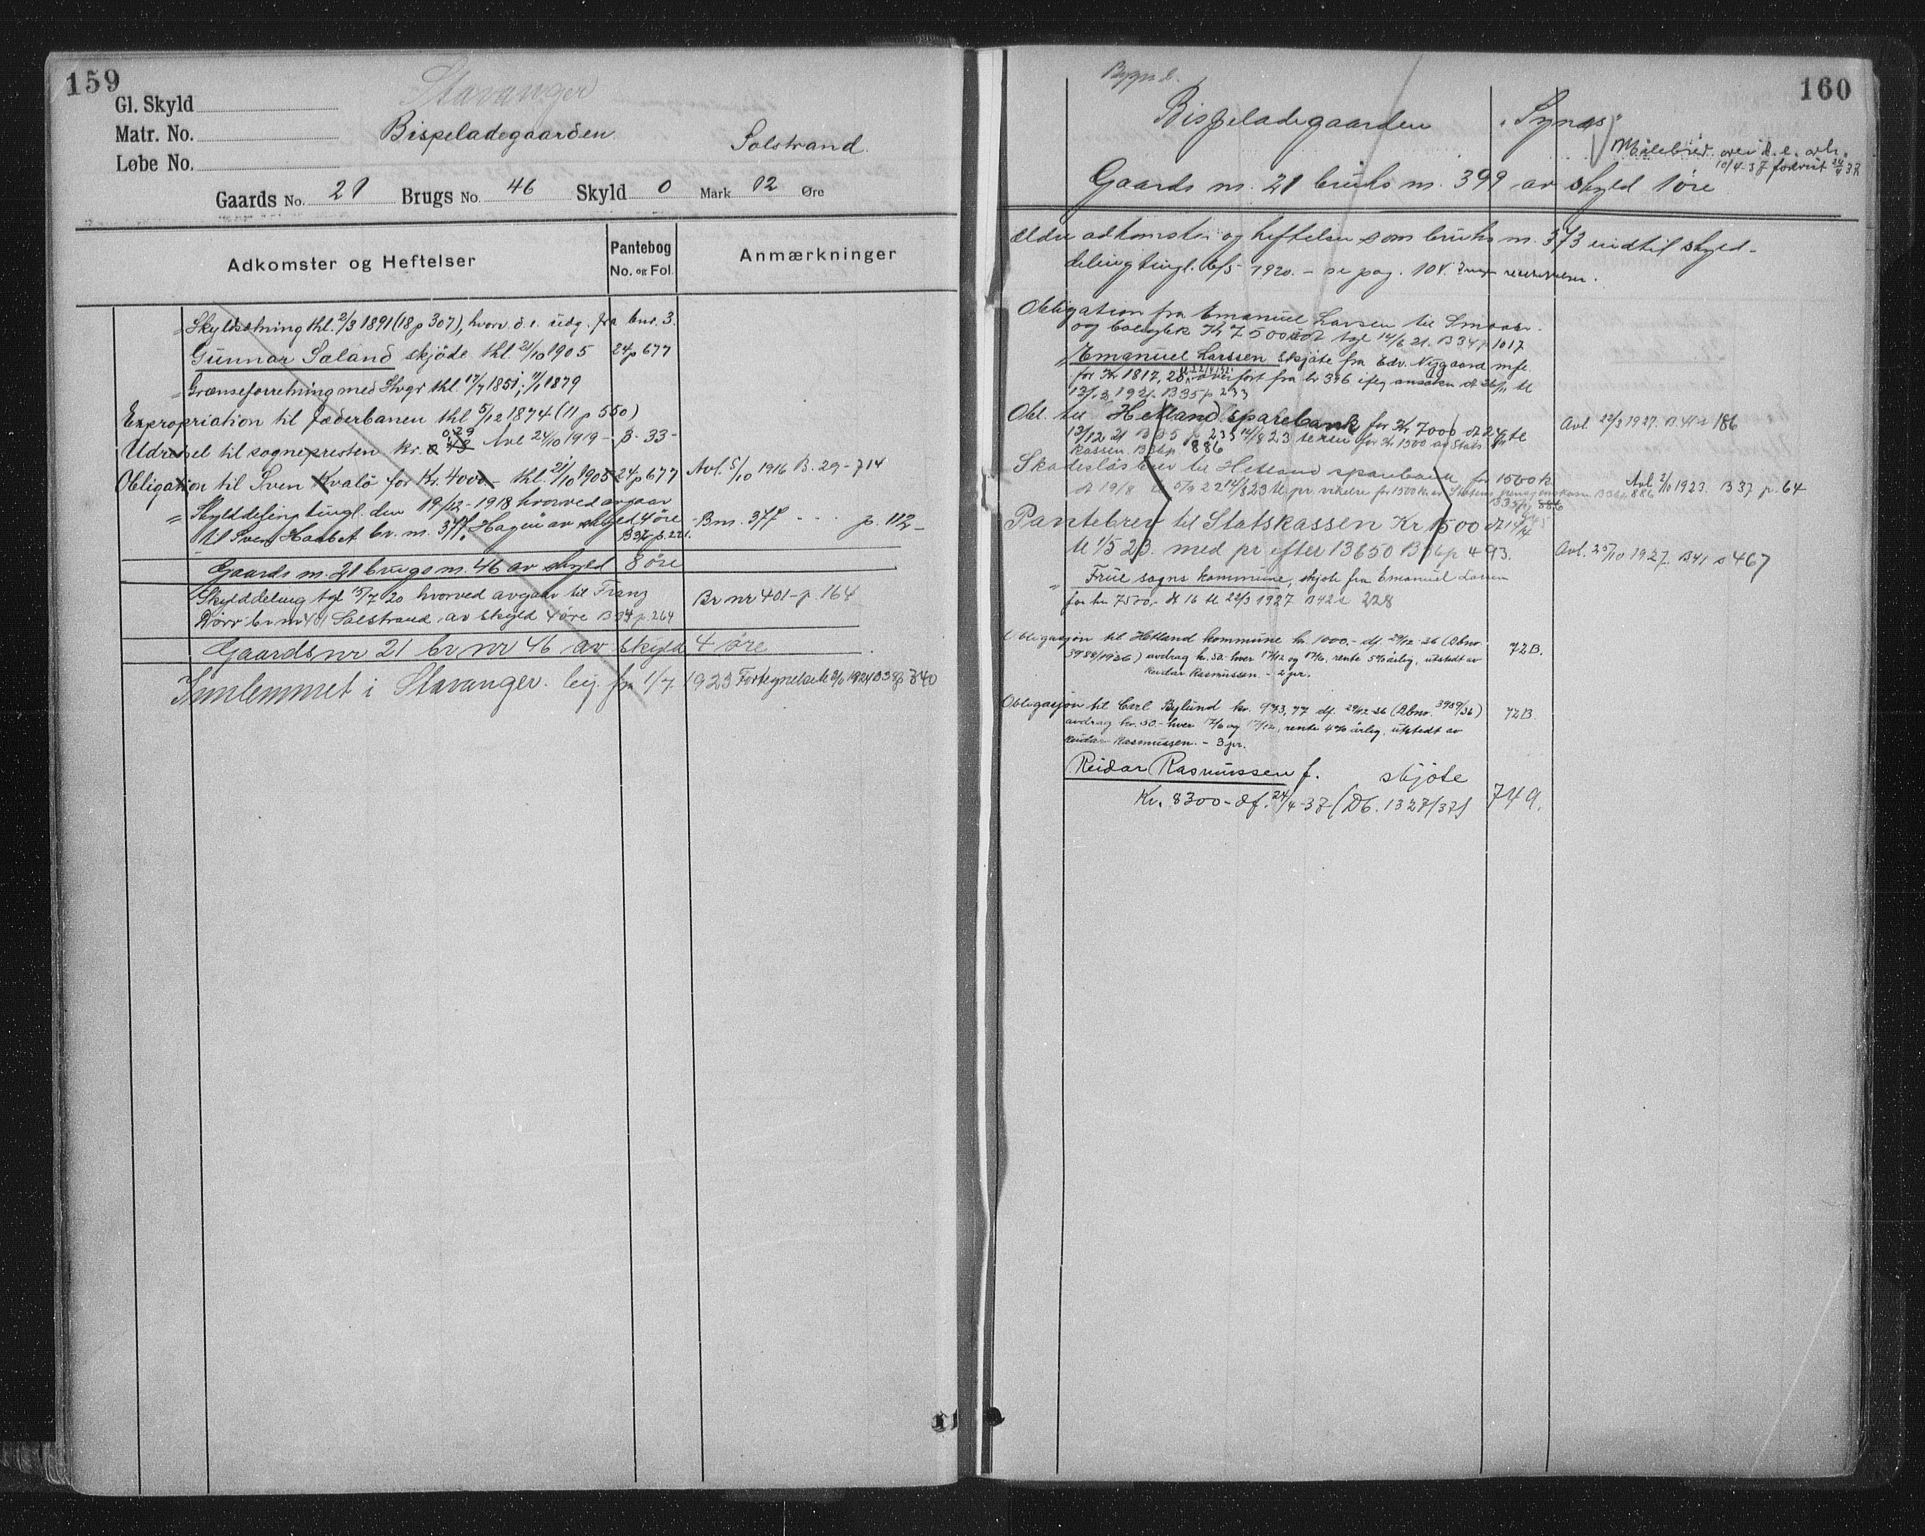 159
Stavanger
Gl. Skyld
Matr. No.
Løbe No.
Bispeladegaarden
Solstrand
Gaards No. 21 Brugs No. 46 Skyld 0 Mark 12 Øre
Adkomster og Heftelser
Pantebog No. og Fol.
Anmærkninger
Skyldsetning thl. 2/3 1891 (18 p 307), hvorv. d. e. udg. fra bnr. 3.
Gunnar Saland skjøde thl. 21/10 1905 24 p 677
Grænseforretning med Stvgr thl. 17/7 1851; 11/1 1879
Expropriation til Jæderbanen thl. 5/12 1874 (11 p 550)
Udredsel til sognepresten kr. 0,29 Avl 24/10 1919 - B. 33 -
Obligation til Sven Kvalø for Kr. 4000 - thl. 21/10 1905 24 p 677 Avl. 5/10 1916 B. 29 - 714
" Skylddeling tingl. den 19/12 - 1918 hvorved avgaar
til Sven Haabet br. nr. 377. Hagen av skyld 4 øre B 32 p. 221. - Bnr. 377 - - - p. 112 -
Gaards nr. 21 brugs nr. 46 av skyld 8 øre
Skylddeling tgl 15/7 20 hvorved avgaar til Franz
Dörr br nr 401 Solstrand av skyld 4 øre B 34 p. 264 Br nr 401 - p. 164
Gaards nr 21 br nr 46 av skyld 4 øre
Innlemmet i Stavanger by fra 1/7 1923 Fortegnelse 1924 B 38 p 340
160
Bygsel.
Bispeladegaarden "Synæs"
Målebrev over d. e. avh.
10/4-37 forevist 24/4 37
Gaards nr. 21 bruks nr. 399 av skyld 1 øre
Ældre adkomster og heftelser som bruks nr. 373 indtil skyld-
deling tingl. 6/5 - 1920. - se pag. 108.
Obligation fra Emanuel Larsen til Smaabr.
og boligbk Kr 7500 tgl 14/6 21. B 34 p 1017
" Emanuel Larssen skjøte fra Edv. Nygaard mfl.
for Kr 1817,28 overført fra br 376
13/12 1921 B 35 p 233
Obl. til Hetland sparebank for Kr 7000 d 24/9 tl Avl 22/3 1927. B 41 s 186
13/12 21 B 35 p 233 14/8 23 viken for Kr 1500 av Stats
kassen. B 36 p 886
Skadesløsbrev til Hetland sparebank for 1500 k Avl 2/10 1923. B 37 p. 64
d 19/8 22 14/8 23 tl pr. vikelse for 1500 kr av Statens pensjonskasse B 36 p 886
Pantebrev til Statskassen Kr 1500 d 17/4
tl 1/5 23. med pr efter 13650 B 36 p 493. Avl. 25/10 1927 B 41 s 467
" Frue sogns kommune, skjøte fra Emanuel Larsen
for kr 7500,- d 16 tl 22/3 1927 B 42 s 228
Obligasjon til Hetland kommune kr. 1000.- df. 29/12-36 (Dbnr. 72B.
3988/1936) avdrag kr. 50.- hver 17/12 og 17/6, rente 5% årlig, utstedt av
Reidar Rasmussen. - 2 pr.
Obligasjon til Carl Bylund kr. 973,77 df. 29/12-36 (Dbnr. 3989/36) 72B.
avdrag kr. 50.- hver 17/6 og 17/12, rente 4% årlig, utstedt av
Reidar Rasmussen. - 3 pr.
Reidar Rasmussen f. skjøte
Kr. 8300 - df. 24/4-37 (Db. 1327/37) 749.